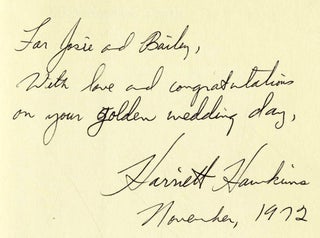 For Josie and Bailey,
With love and congratulations
on your golden wedding day,
Harriett Hawkins
November, 1972